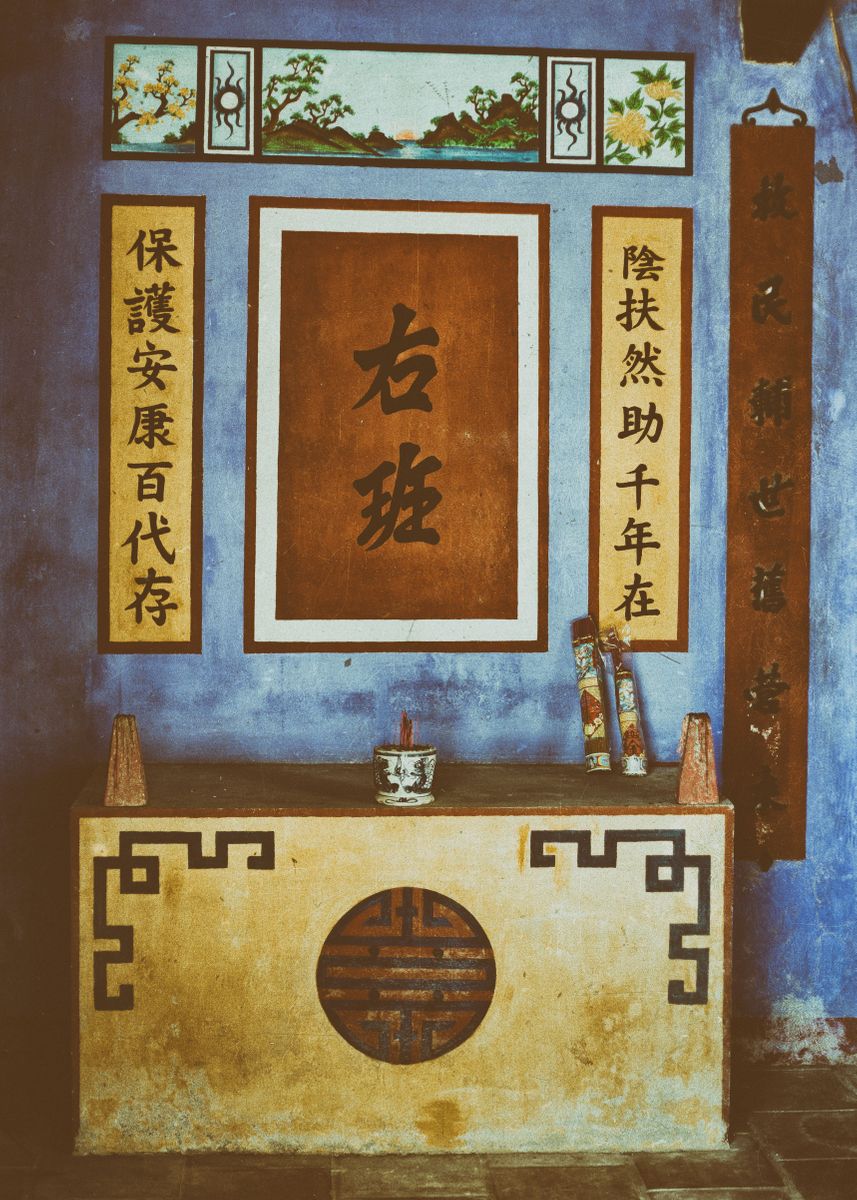 救民輔世舊營來
陰扶然助千年在
右班
保護安康百代存